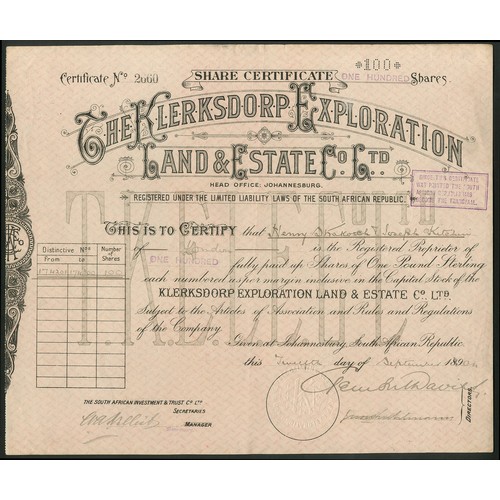 100
Certificate No 2660 SHARE CERTIFICATE ONE HUNDRED Shares
THE KLERKSDORP EXPLORATION
LAND & ESTATE Co. LTD
HEAD OFFICE: JOHANNESBURG.
REGISTERED UNDER THE LIMITED LIABILITY LAWS OF THE SOUTH AFRICAN REPUBLIC.
THIS IS TO CERTIFY that Henry Strakosch & Joseph
of London is the Registered Proprietor of
ONE HUNDRED fully paid up Shares of One Pound Sterling
each numbered as per margin inclusive in the Capital Stock of the
KLERKSDORP EXPLORATION LAND & ESTATE Co. LTD.
Subject to the Articles of Association and Rules and Regulations
of the Company.
Given at Johannesburg, South African Republic.
this Twelfth day of September
Distinctive Nos Number of Shares
From to
T.K.E.L. & E. Co LTD
THE SOUTH AFRICAN INVESTMENT & TRUST Co LTD
SECRETARIES
MANAGER
DIRECTORS.